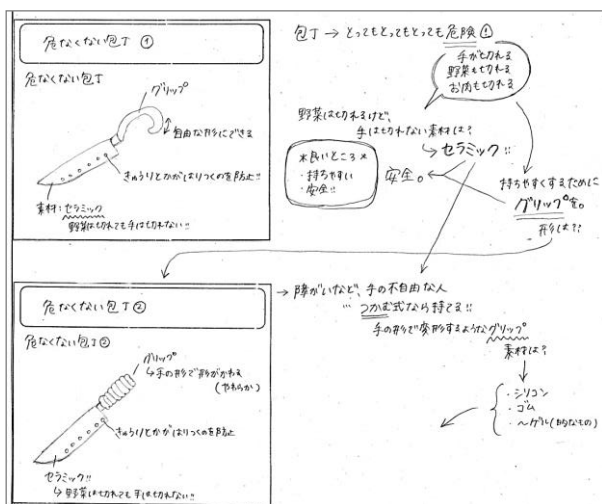 危なくない包丁①
危なくない包丁
グリップ
自由な形にできる
きゅうりとかがはりつくのを防止!!
素材:セラミック
野菜は切れても手は切れない!!
包丁→とってもとってもとっても危険!
手が切れる
野菜も切れる
お肉も切れる
野菜は切れるけど、
手はきれない素材は?
セラミック!!
*良いところ*
・持ちやすい
・安全!!
安全。
持ちやすくするために
グリップを。
形は??
危なくない包丁②
危なくない包丁②
グリップ
↳手の形で形がかわる
(やわらか)
きゅうりとかがはりつくのを防止
セラミック!!
↳野菜は切れても手は切れない!!
→障がいなど、手の不自由な人
…つかむ式なら持てる!!
手の形で変形するようなグリップ
素材は?
・シリコン
・ゴム
・〜ゲル(的なもの)